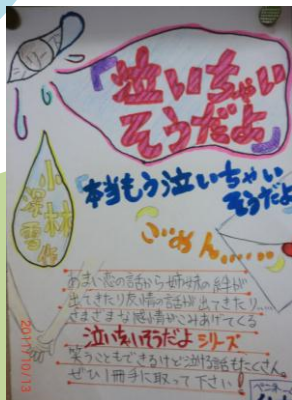 『泣いちゃい
そうだよ』
小林
深雪作
本当もう泣いちゃい
そうだよ
ごめん……
あまい恋の話から姉妹の絆が
出てきたり友情の話が出てきたり…
さまざまな感情がこみあげてくる
泣いちゃいそうだよシリーズ
笑うこともできるけど泣ける話もたくさん。
ぜひ1冊手に取って下さい!
2011/10/13